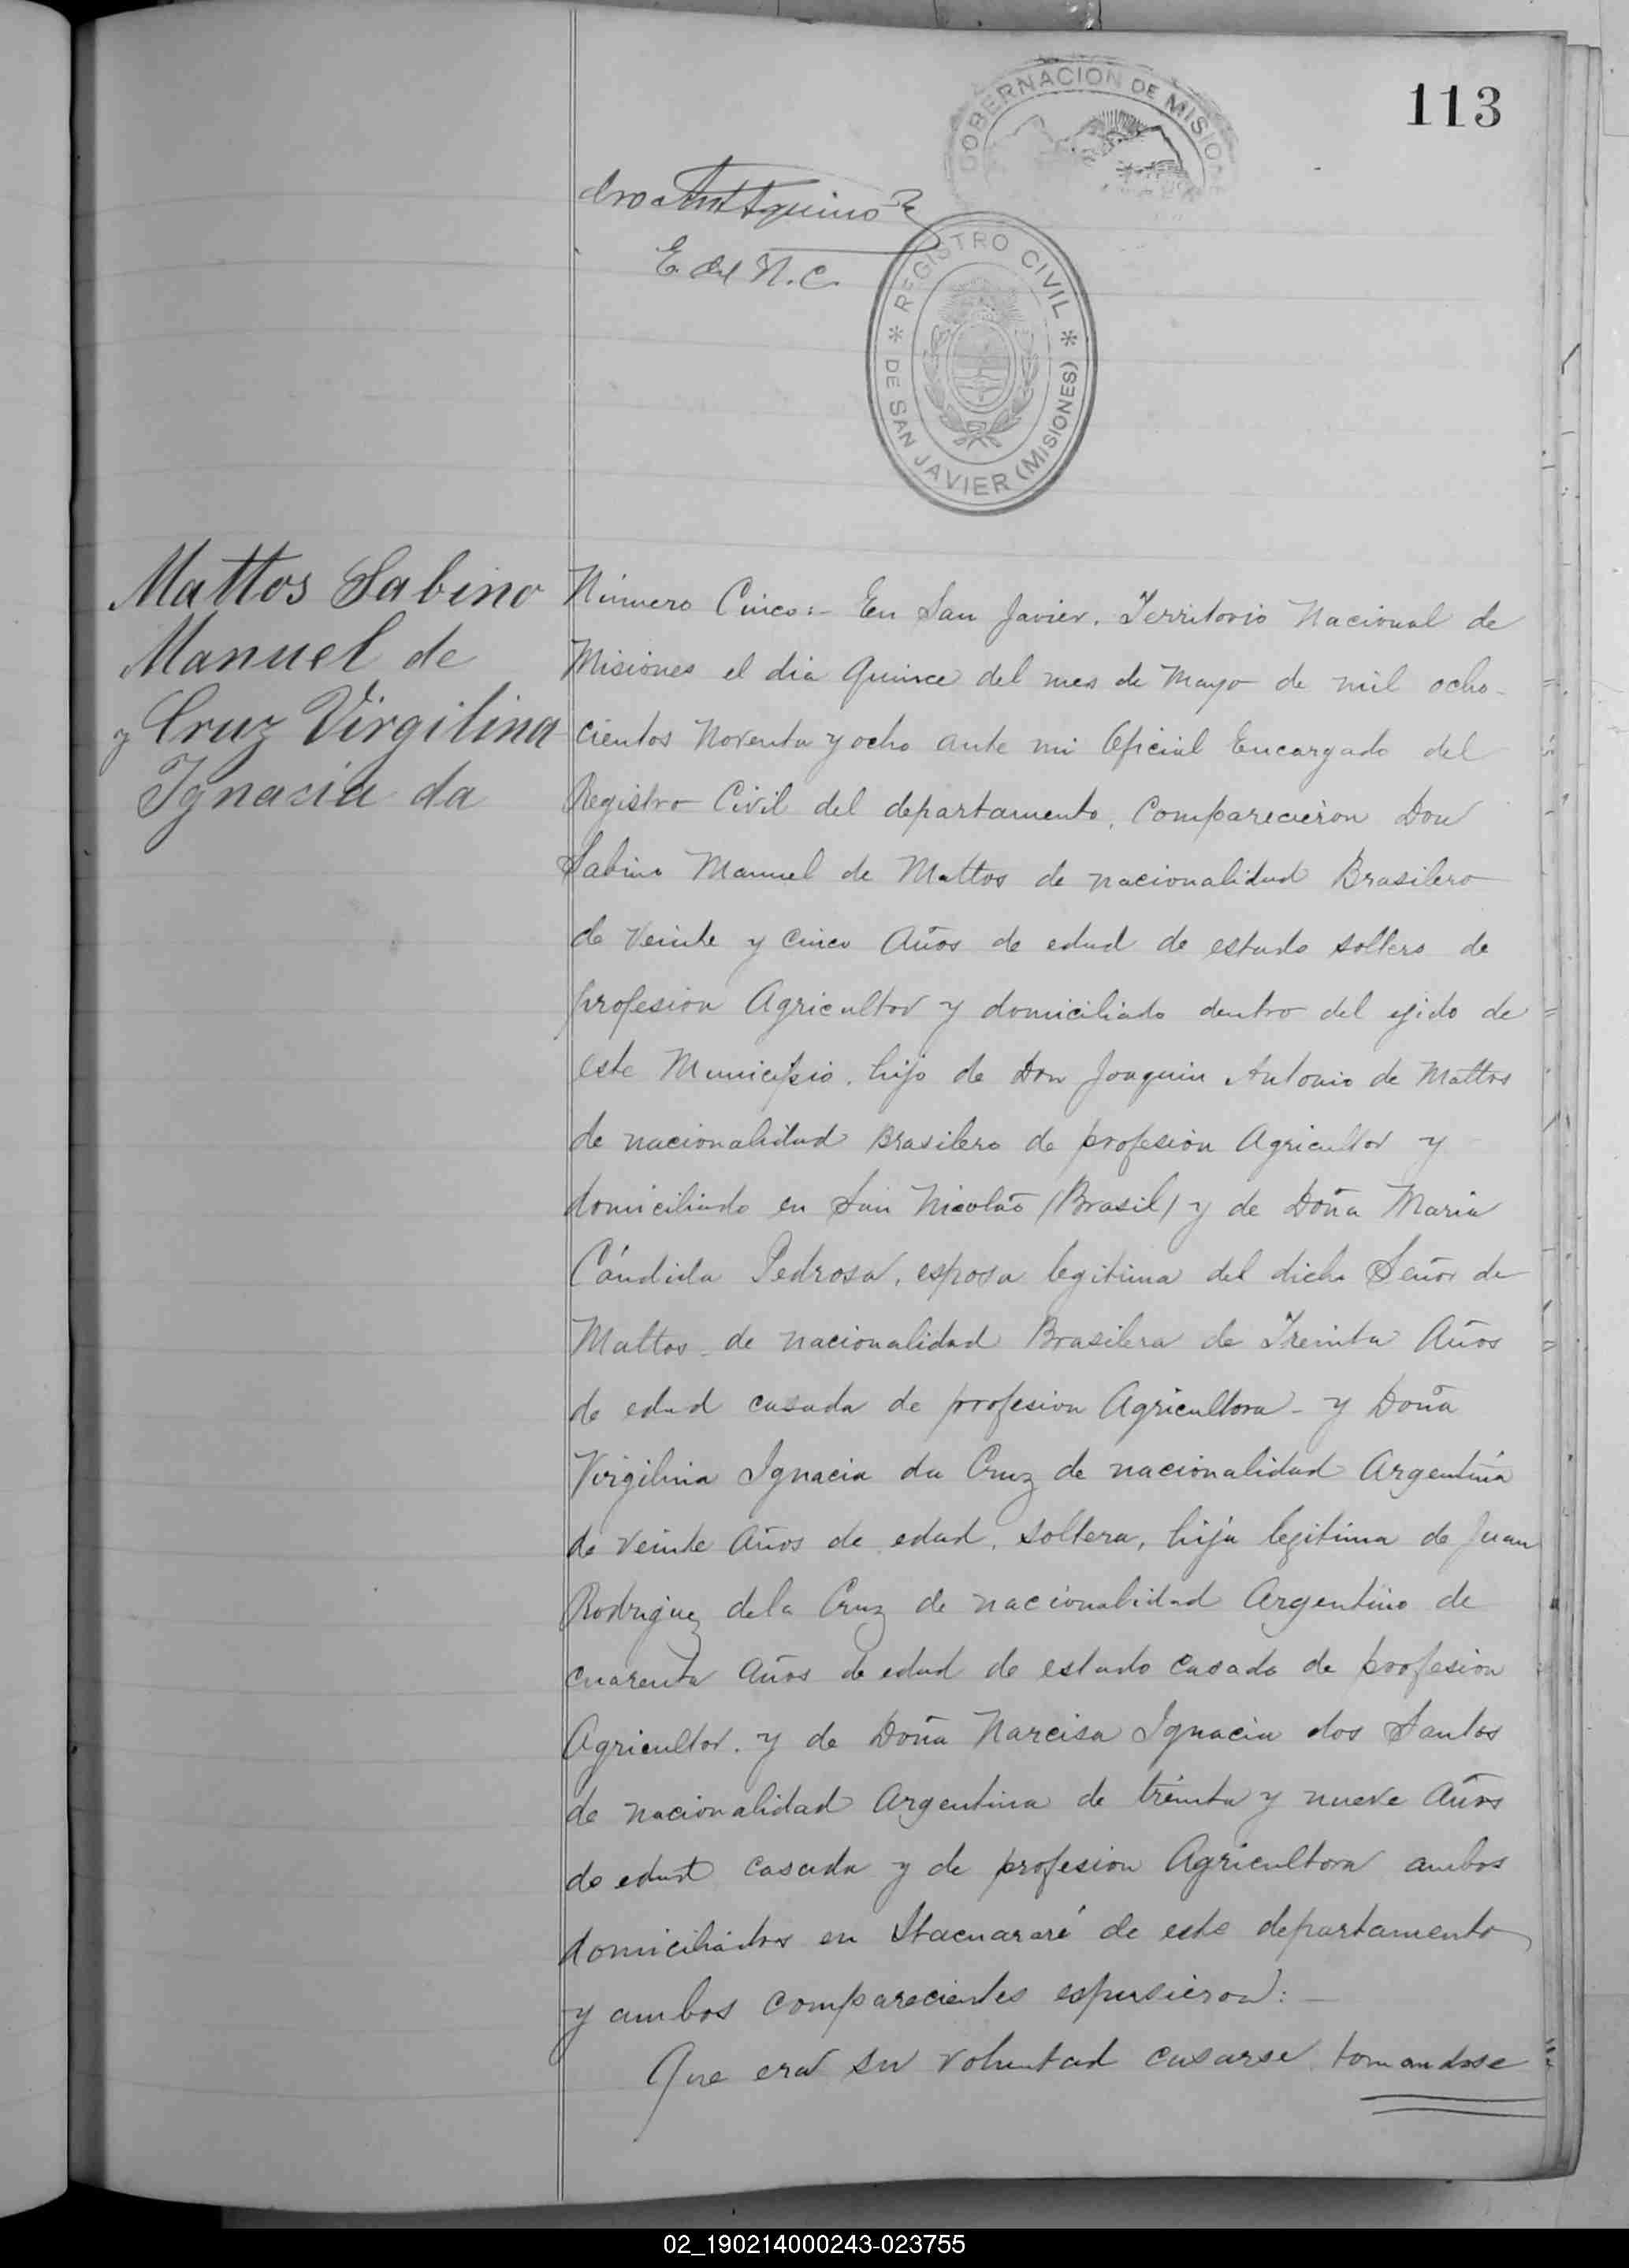 113
GOBERNACION DE MISIONE
Aquino
E. del R. C.
* REGISTRO CIVIL *
DE SAN JAVIER (MISIONES)
Mattos Sabino
Manuel de
y Cruz Virgilina
Ignacia da
Número Cinco:- En San Javier. Territorio Nacional de
Misiones el dia quince del mes de Mayo de mil ocho-
cientos Noventa y ocho ante mi Oficial Encargado del
Registro Civil del departamento, Comparecieron Don
Sabino Manuel de Mattos de nacionalidad Brasilero
de Veinte y cinco Años de edad de estado soltero de
profesion Agricultor y domiciliado dentro del ejido de
este Municipio, hijo de Don Joaquin Antonio de Mattos
de nacionalidad Brasilero de profesion Agricultor y
domiciliado en San Nicoláo (Brasil) y de Doña Maria
Cándida Pedrosa, esposa legitima del dicho Señor de
Mattos de nacionalidad Brasilera de Treinta Años
de edad casada de profesion Agricultora - y Doña
Virgilina Ignacia da Cruz de nacionalidad Argentina
de veinte Años de edad, soltera, hija legitima de Juan
Rodriguez dela Cruz de nacionalidad Argentino de
cuarenta Años de edad de estado casado de profesion
Agricultor. y de Doña Narcisa Ignacia dos Santos
de nacionalidad Argentina de treinta y nueve Años
de edad casada y de profesion Agricultora ambos
domiciliados en Itacuararé de este departamento
y ambos comparecientes espusieron: -
Que era su voluntad casarse, tomandose
02_190214000243-023755